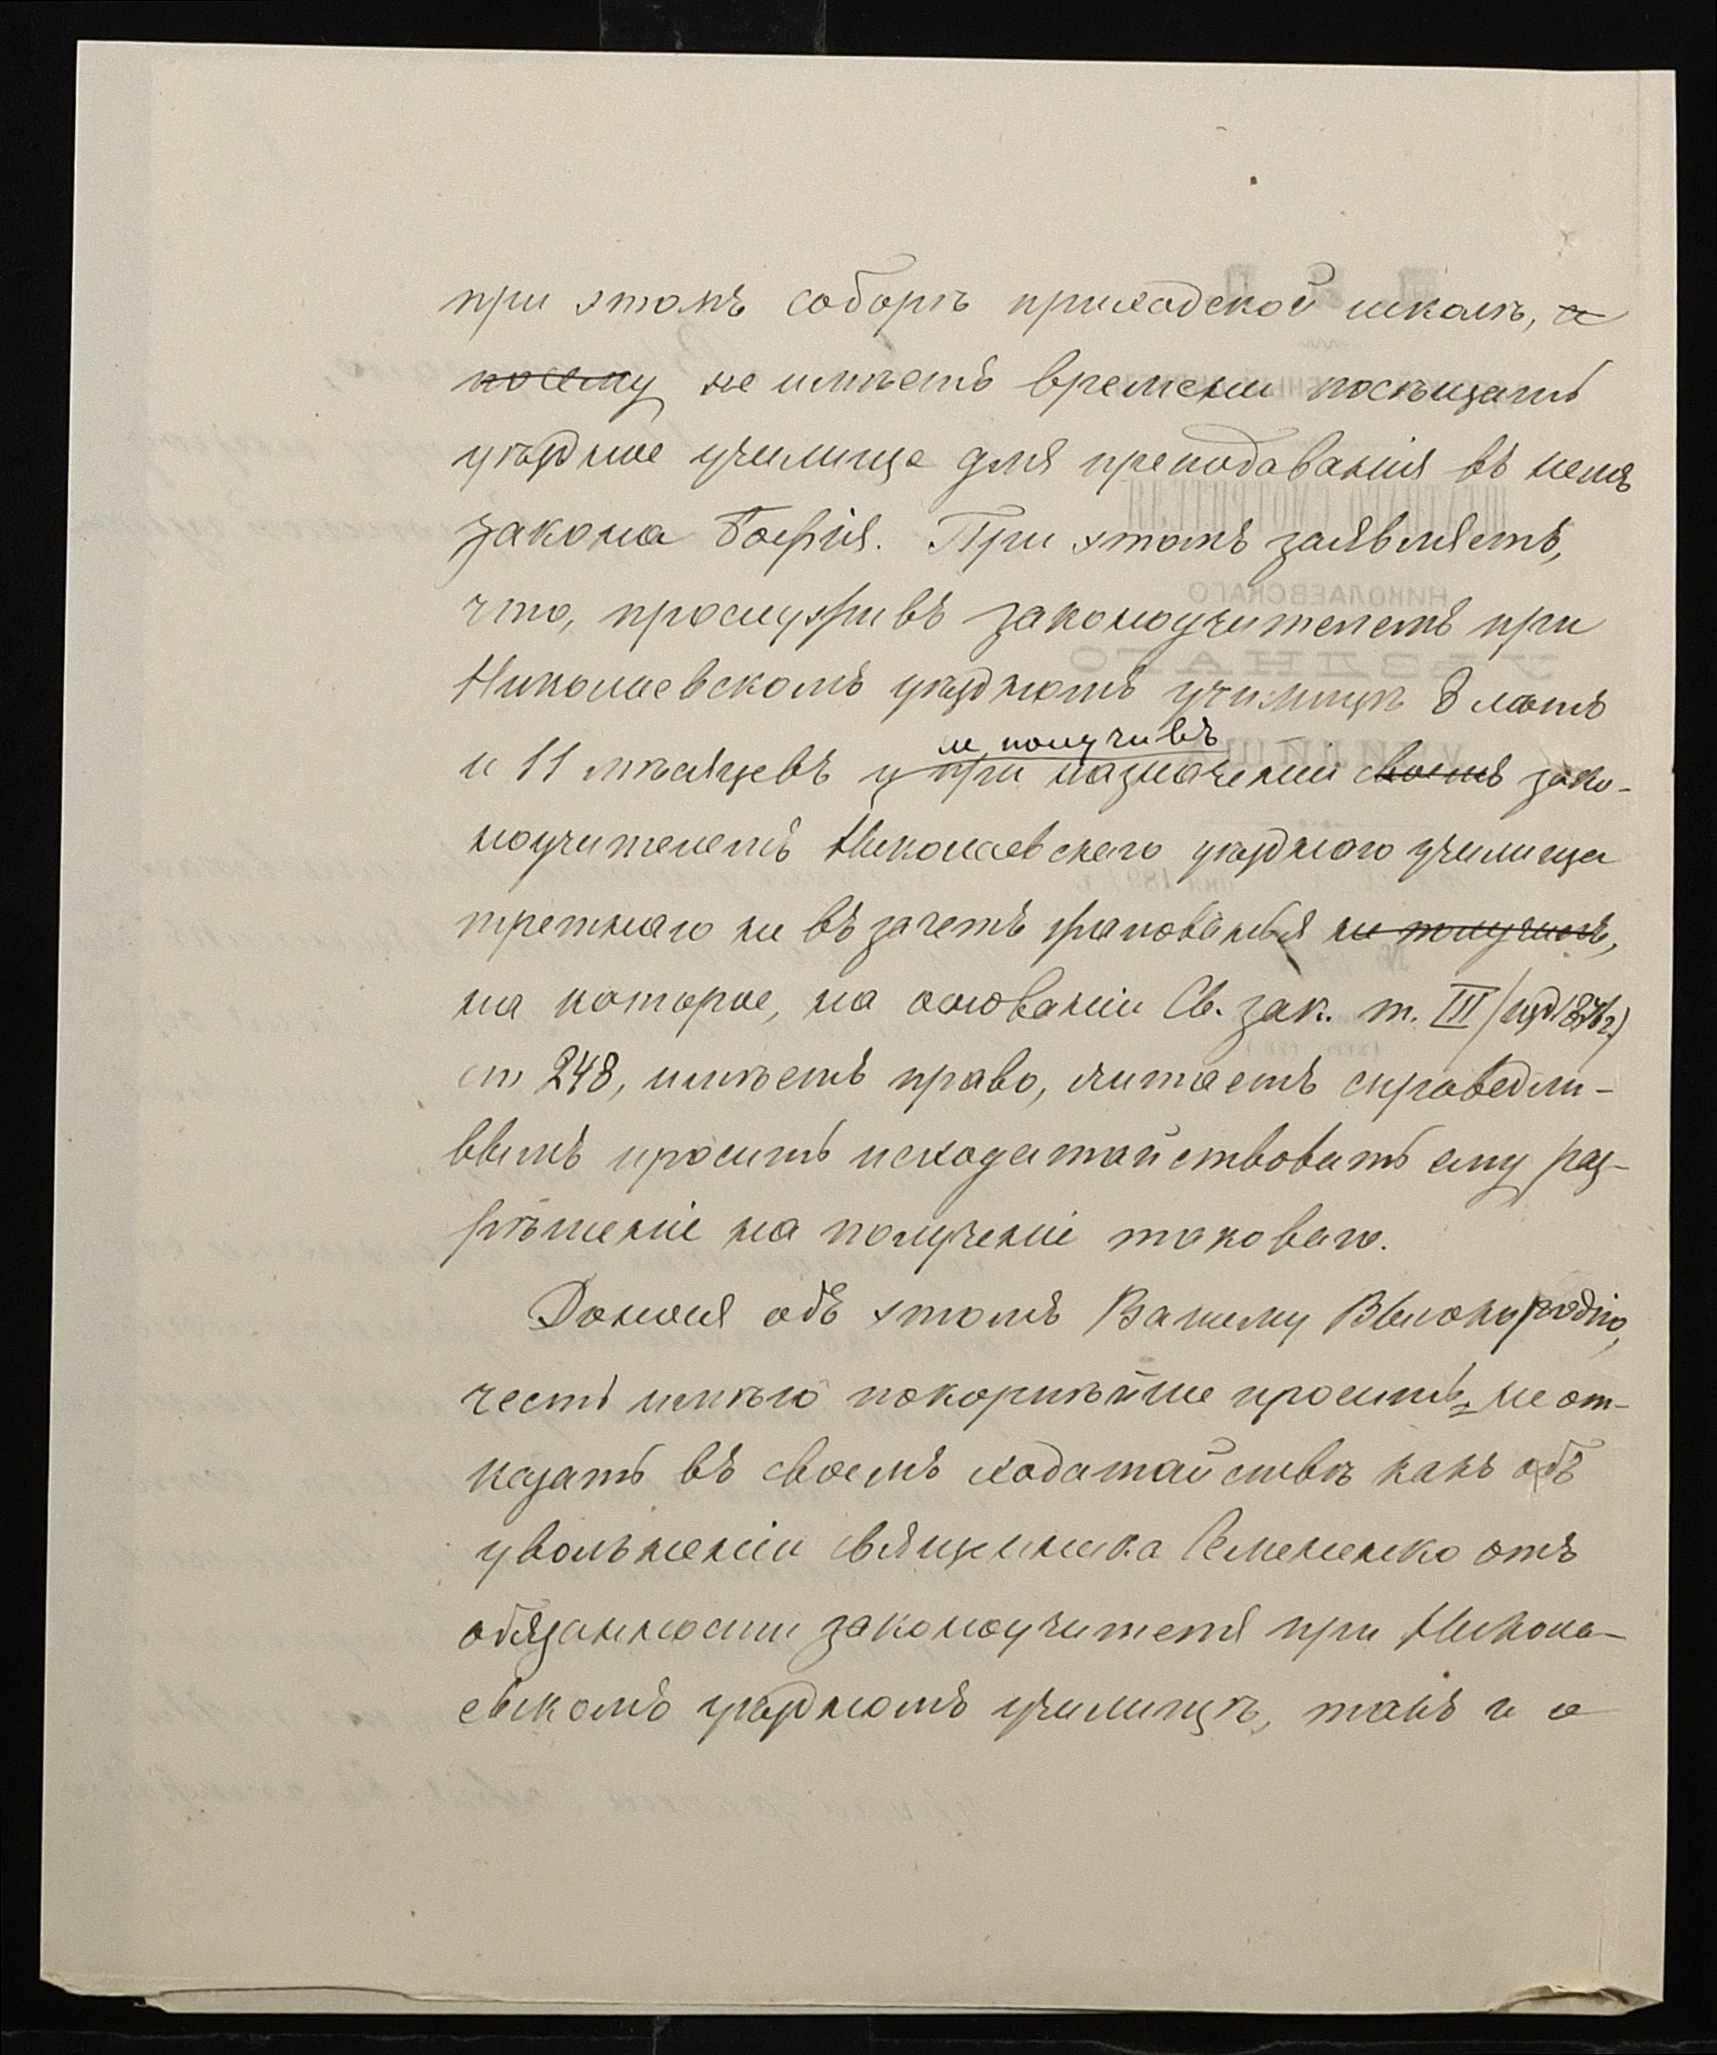 при этомъ соборѣ приходской школѣ, а
посему не имѣетъ времени посѣщать
уѣздное училище для преподаванія въ немъ
закона Божія. При этомъ заявляетъ,
что, прослуживъ законоучителемъ при
Николаевскомъ уѣздномъ училищѣ 8 лѣтъ
не получивъ
и 11 мѣсяцевъ и при назначеніи своемъ зако-
ноучителемъ Николаевскаго уѣзднаго училища
третнаго не въ зачетъ жалованья не получилъ,
на которое, на основаніи Св. зак. т. III (изд. 1876 г.)
ст 248, имѣетъ право, считаетъ справедли-
вымъ просить исходатайствовать ему раз-
рѣшеніе на полученіе таковаго.
Донося объ этомъ Вашему Высокородію,
честь имѣю покорнѣйше просить не от-
казать въ своемъ ходатайствѣ какъ объ
увольненіи священника Семененко отъ
обязанности законоучителя при Никола-
евскомъ уѣздномъ училищѣ, такъ и о
НИКОЛАЕВСКАГО
УѢЗДНАГО